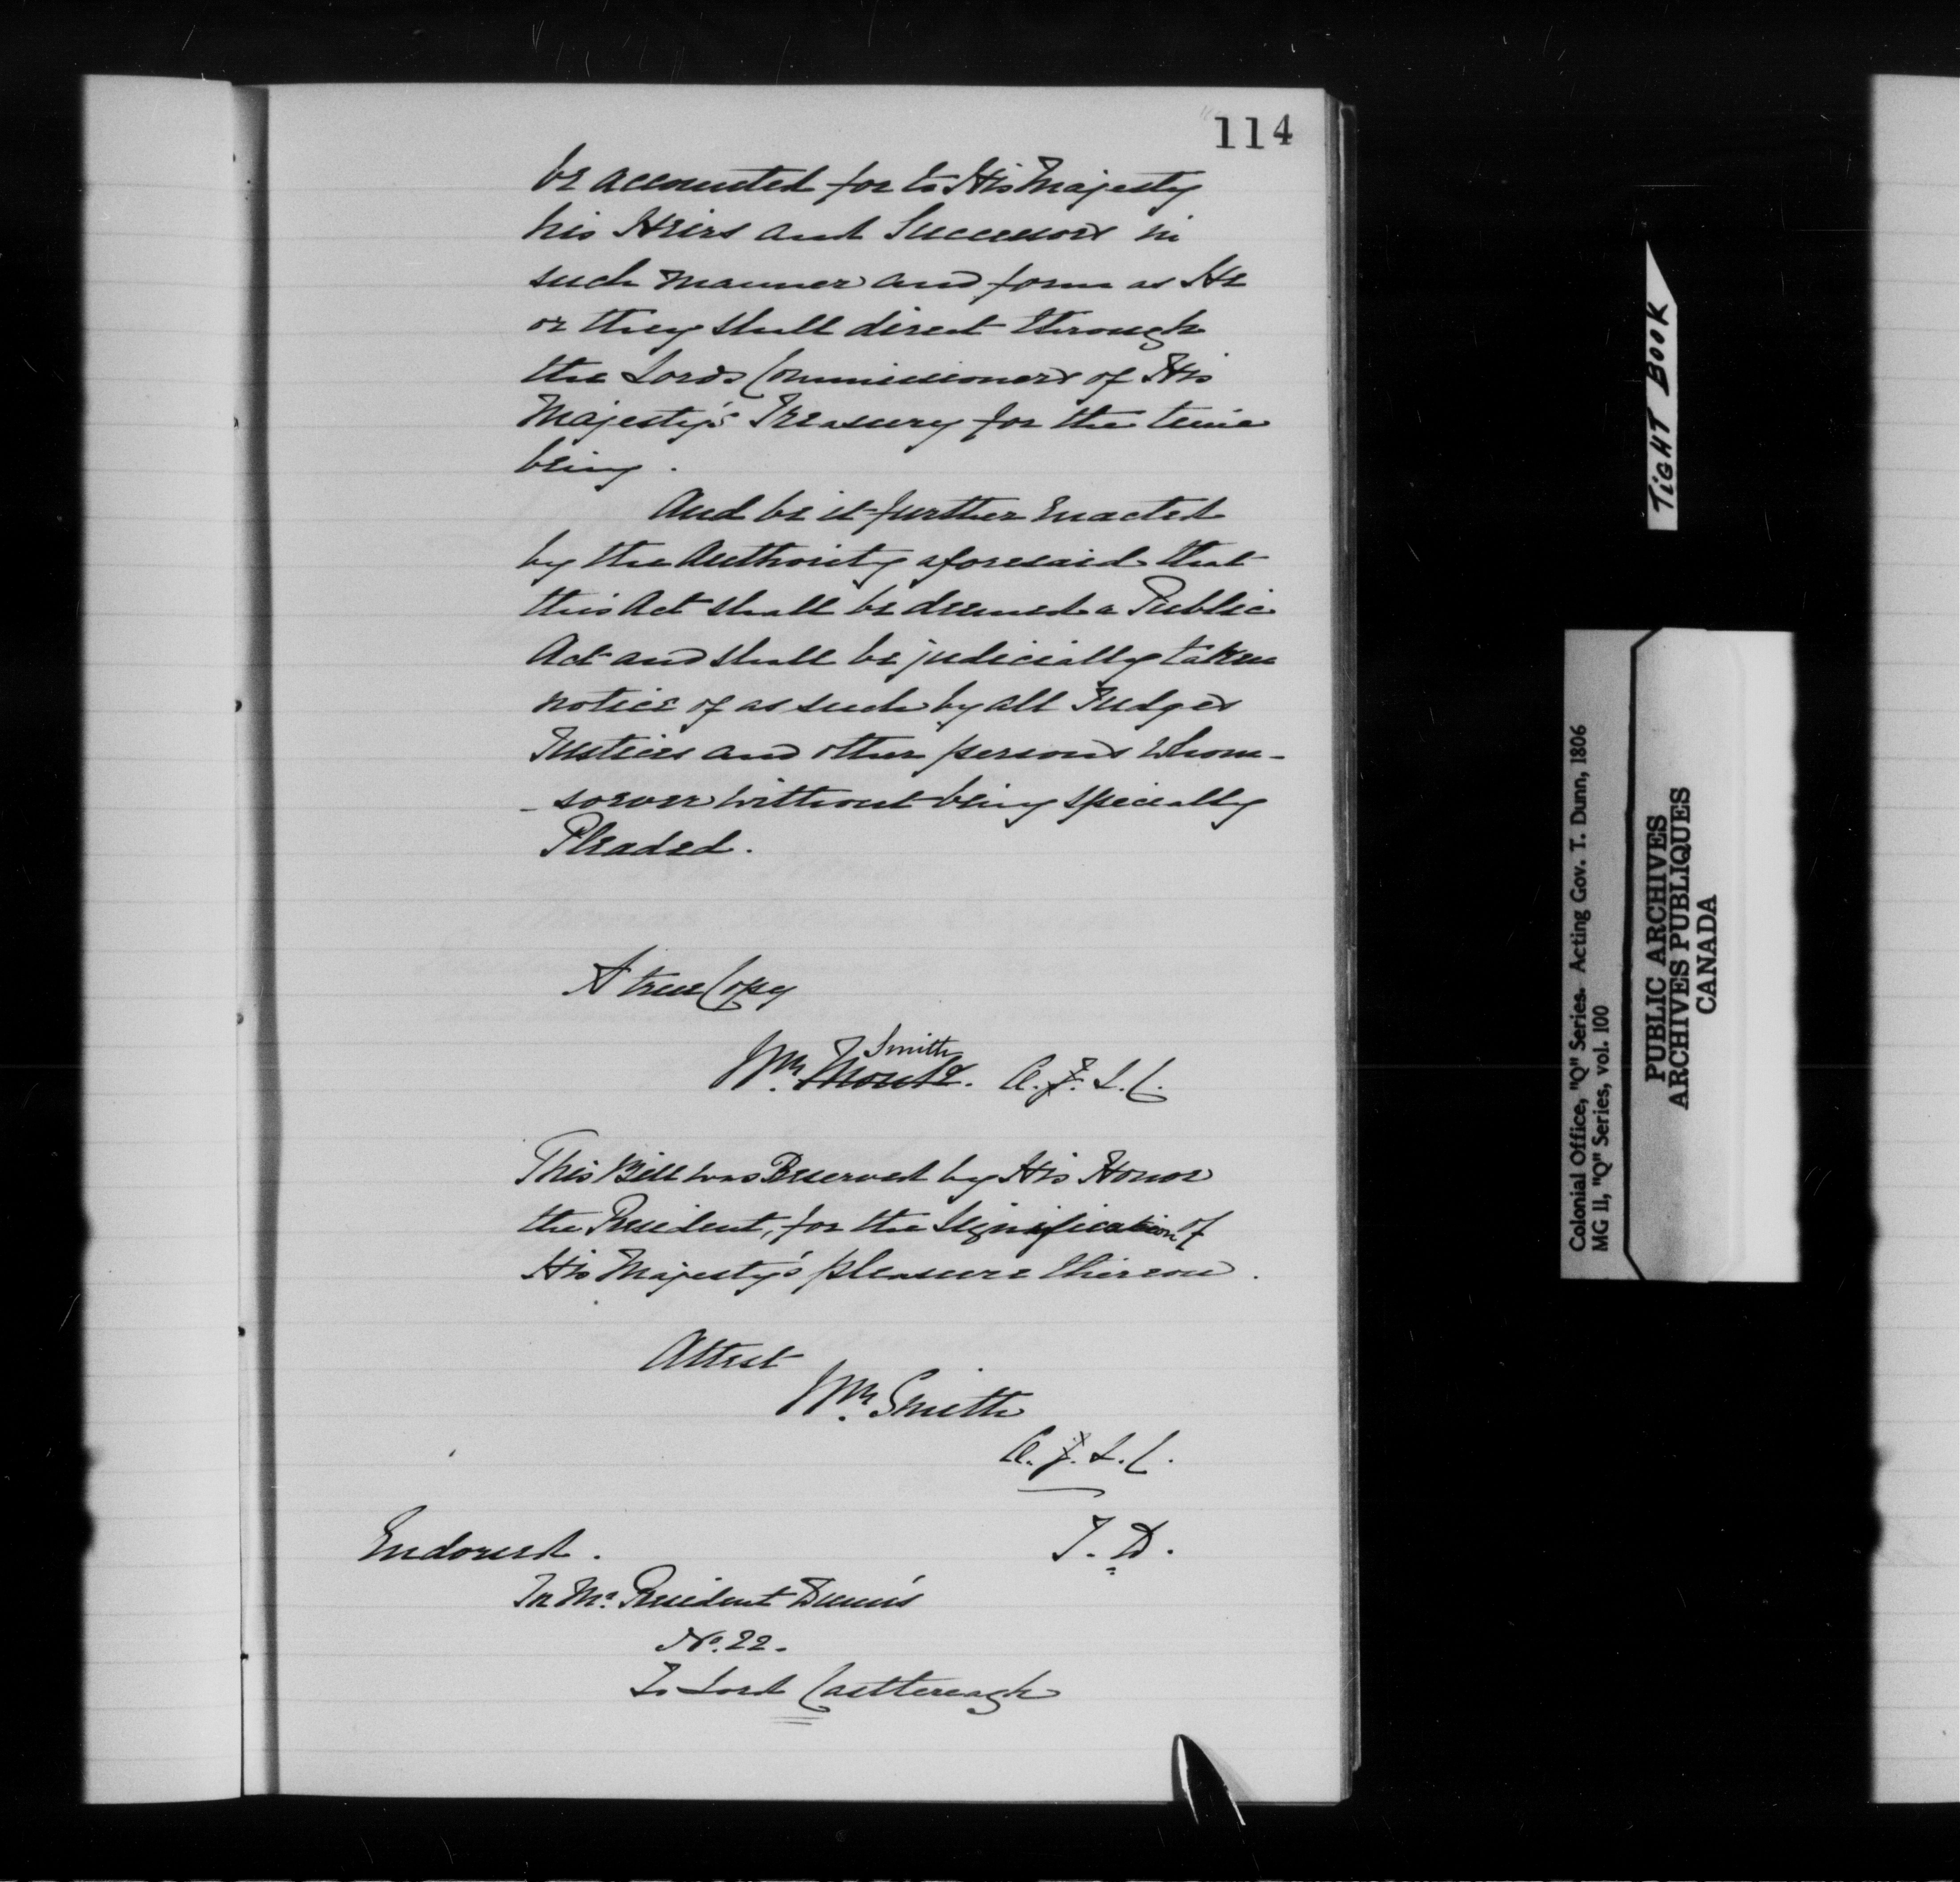 114
be accounted for to His Majesty
his Heirs and Successors in
such manner and form as He
or they shall direct through
the Lords Commissioners of His
Majesty's Treasury for the time
being.
And be it further Enacted
by the Authority aforesaid that
this Act shall be deemed a Public
Act and shall be judicially taken
notice of as such by all Judges
Justices and other persons Whom-
-soever without being specially
Pleaded.
A true Copy
Smith
Wm. Monk. C. J. L. C.
This Bill was Reserved by His Honor
the President, for the Signification of
His Majesty's pleasure thereon.
Attest
Wm. Smith
C. J. L. C.
T. D.
Endorsed.
In Mr. President Dunn's
No. 22.
To Lord Castlereagh
TIGHT BOOK
Colonial Office, "Q" Series. Acting Gov. T. Dunn, 1806
MG 11, "Q" Series, vol. 100
PUBLIC ARCHIVES
ARCHIVES PUBLIQUES
CANADA